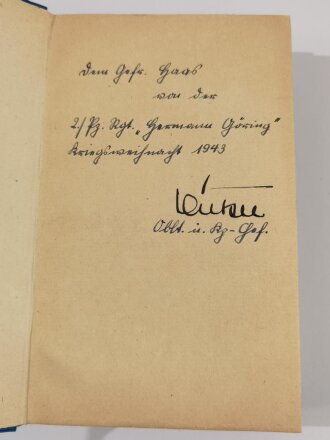 Dem Gefr. Haas
von der
2./Pz. Rgt. „Hermann Göring"
Kriegsweihnacht 1943
Oblt. u. Kp-Chef.